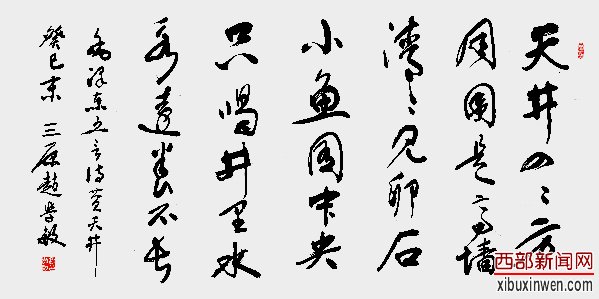 天井四〻方
周围是高墙
清〻见卵石
小鱼囿中央
只喝井里水
永遠养不长
毛泽东五言诗赞天井
癸巳末 三原趙学敏
西部新闻网
xibuxinwen.com